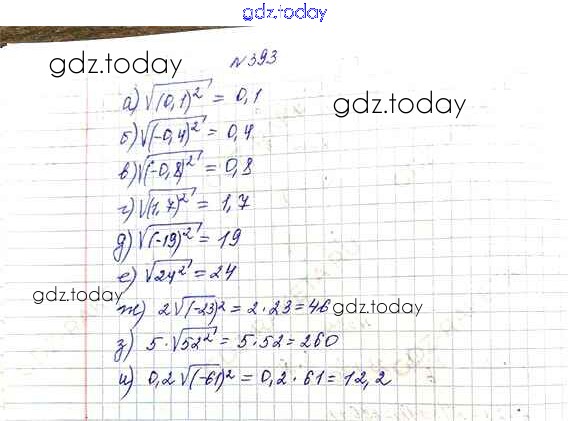 gdz.today
№393
gdz.today
а) √(0,1)² = 0,1
gdz.today
б) √(-0,4)² = 0,4
в) √(-0,8)² = 0,8
г) √(1,7)² = 1,7
д) √(-19)² = 19
е) √24² = 24
gdz.today
ж) 2√(-23)² = 2·23 = 46
gdz.today
з) 5·√52² = 5·52 = 260
и) 0,2√(-61)² = 0,2·61 = 12,2